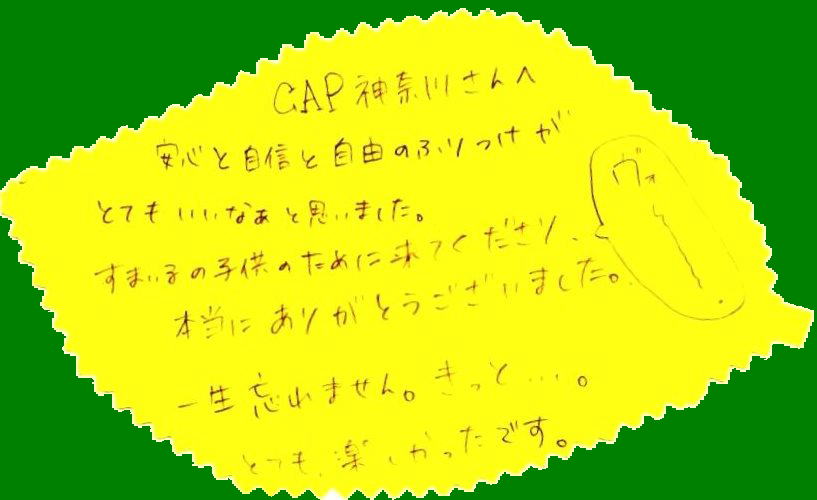 CAP神奈川さんへ
安心と自信と自由のふりつけが
とてもいいなぁと思いました。
すまいるの子供のために来てくださり、
本当にありがとうございました。
一生忘れません。きっと…。
とても、楽しかったです。
ヴォー!